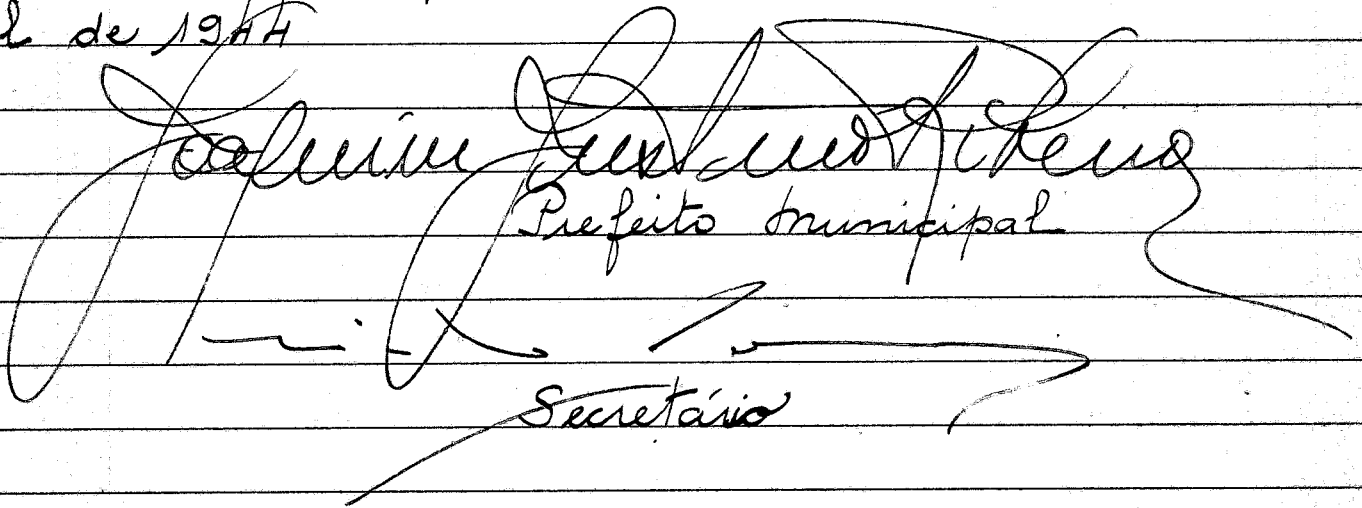 l de 1944
Joaquim Justino Ribeiro
Prefeito Municipal
Secretário